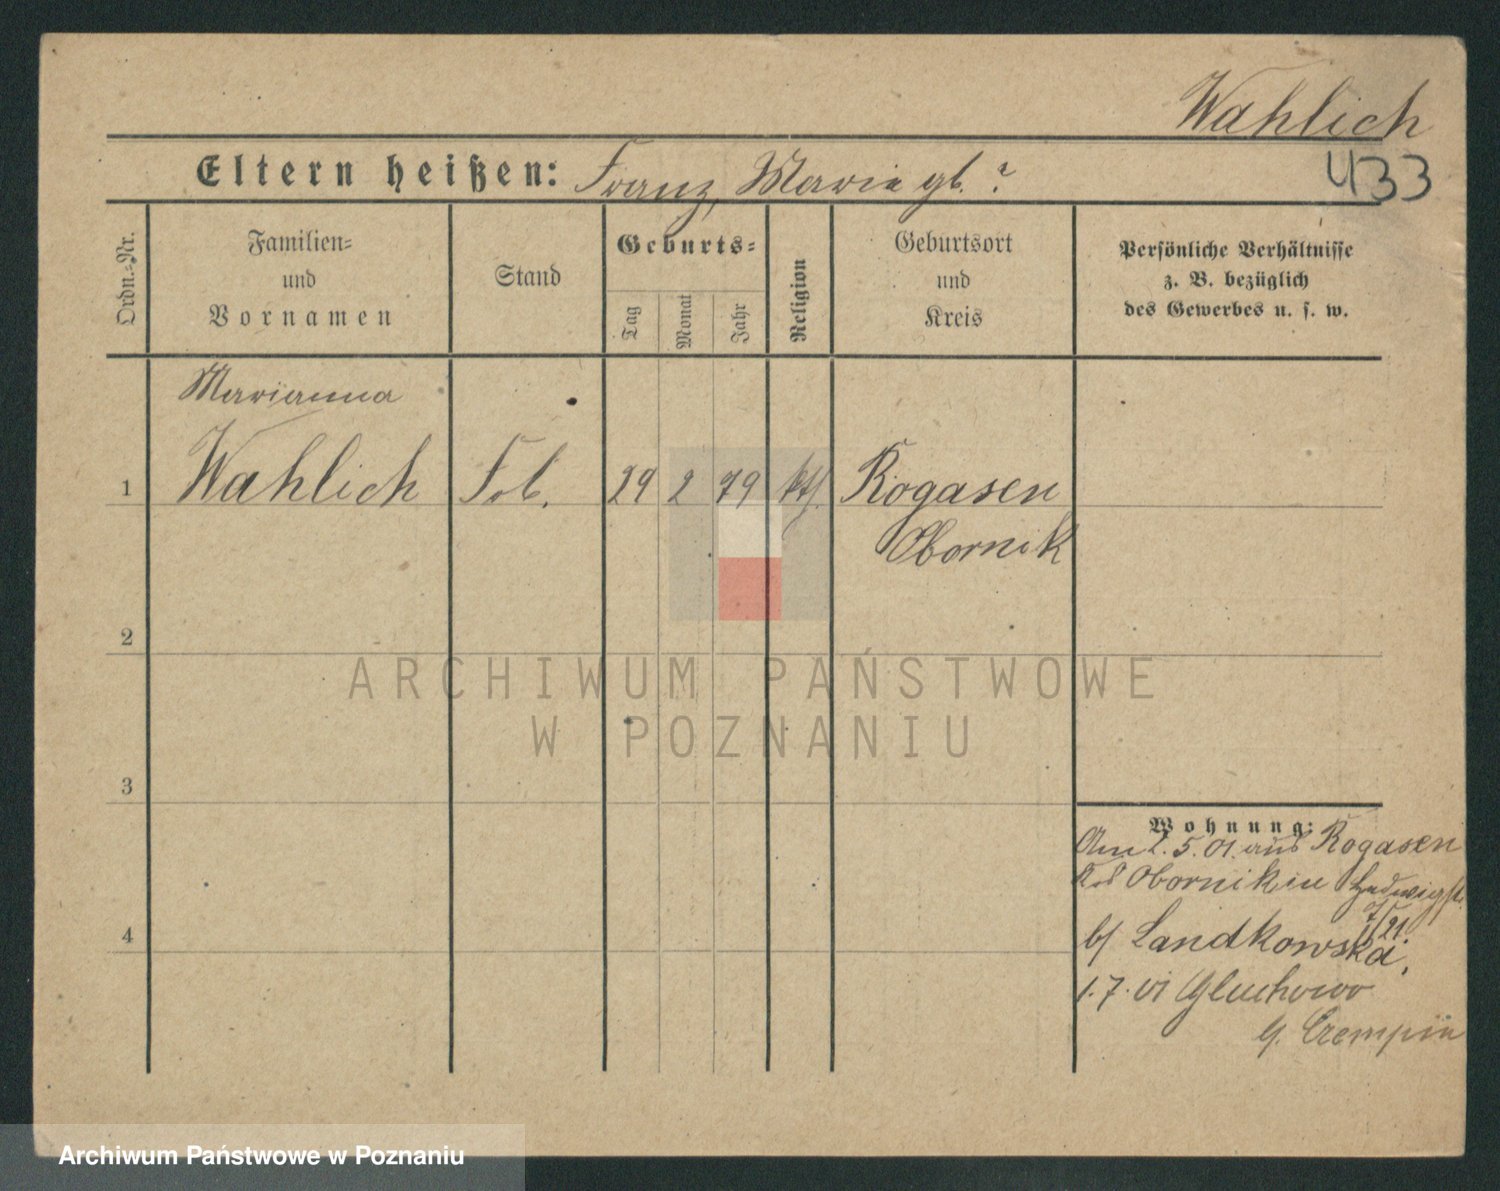 Wahlich
433
Eltern heißen: Franz, Marie gb. ?
Ordn.-Nr.
Familien-
und
Vornamen
Stand
Geburts-
Tag
Monat
Jahr
Religion
Geburtsort
und
Kreis
Persönliche Verhältnisse
z. B. bezüglich
des Gewerbes u. s. w.
Marianna
1 Wahlich 29 2 79 kth. Rogasen
Obornik
2
3
4
ARCHIWUM PAŃSTWOWE
W POZNANIU
Wohnung:
Am 2. 5. 01. aus Rogasen
Obornik in Hedwigst.
b/ Landkowska,
1. 7. 01 Gluchowo
Czempin
Archiwum Państwowe w Poznaniu